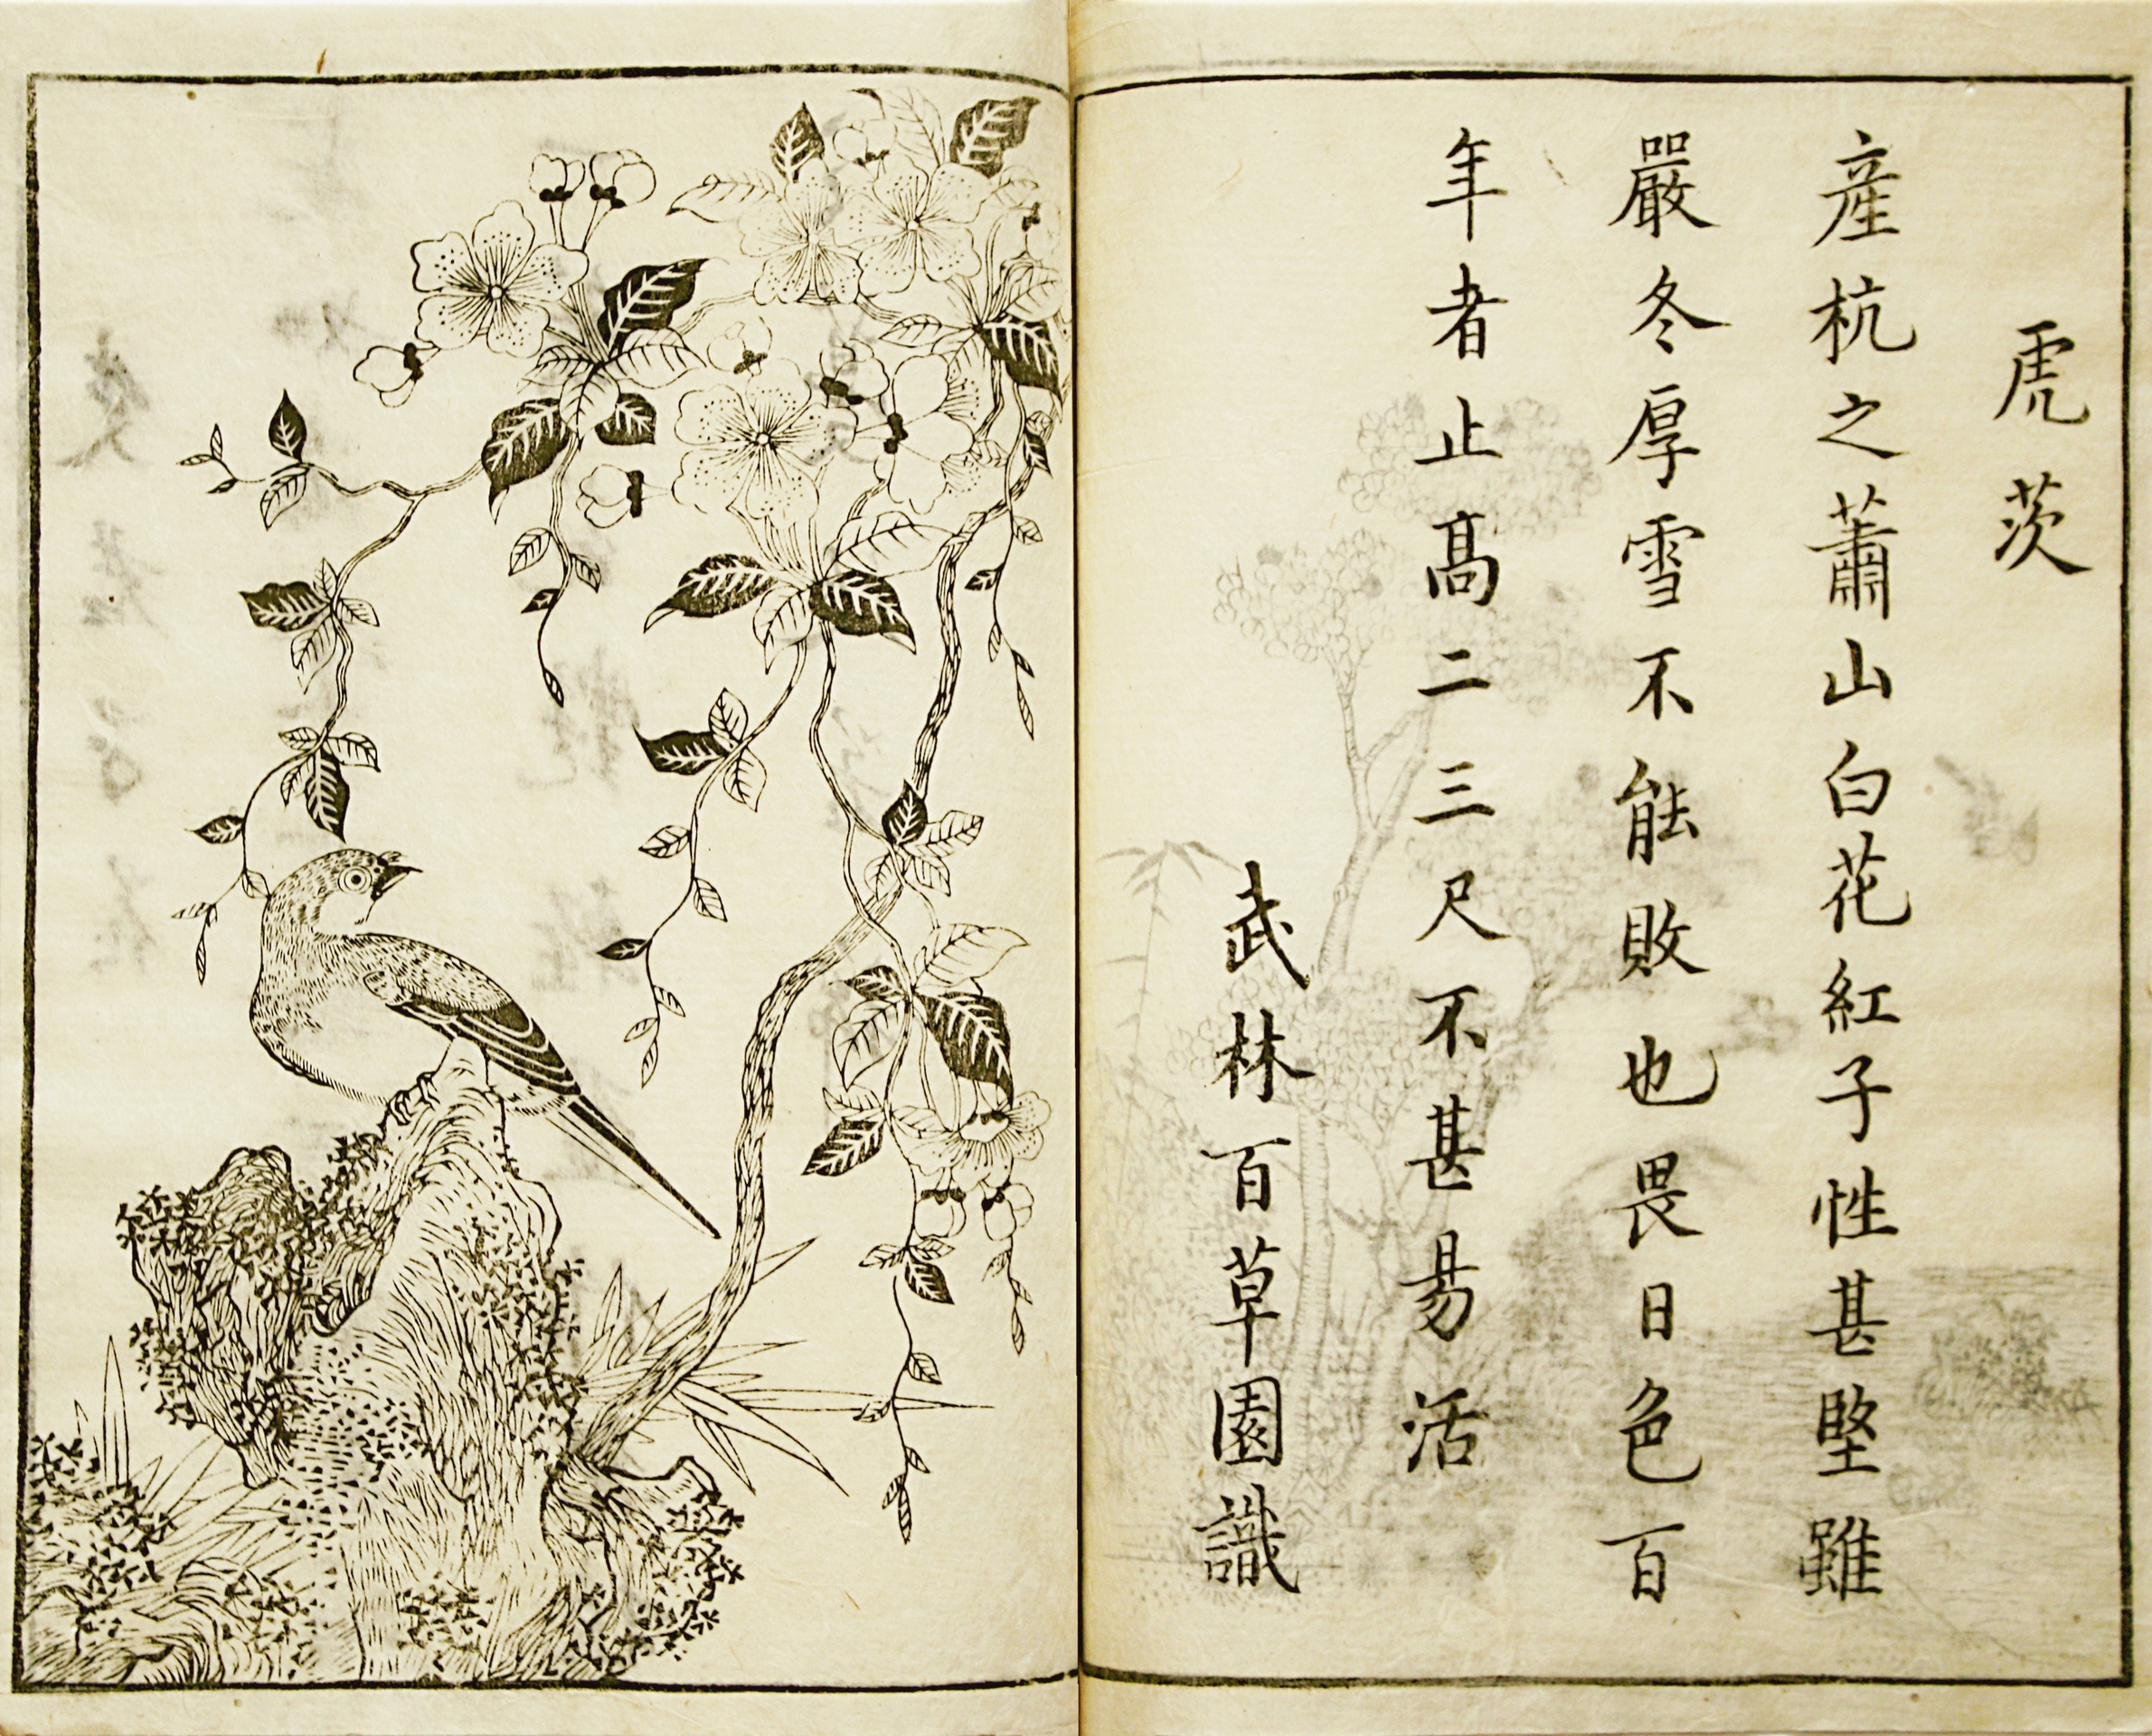 虎茨
產杭之蕭山白花紅子性甚堅雖
嚴冬厚雪不能敗也畏日色百
年者止高二三尺不甚昜活
武林百草園識